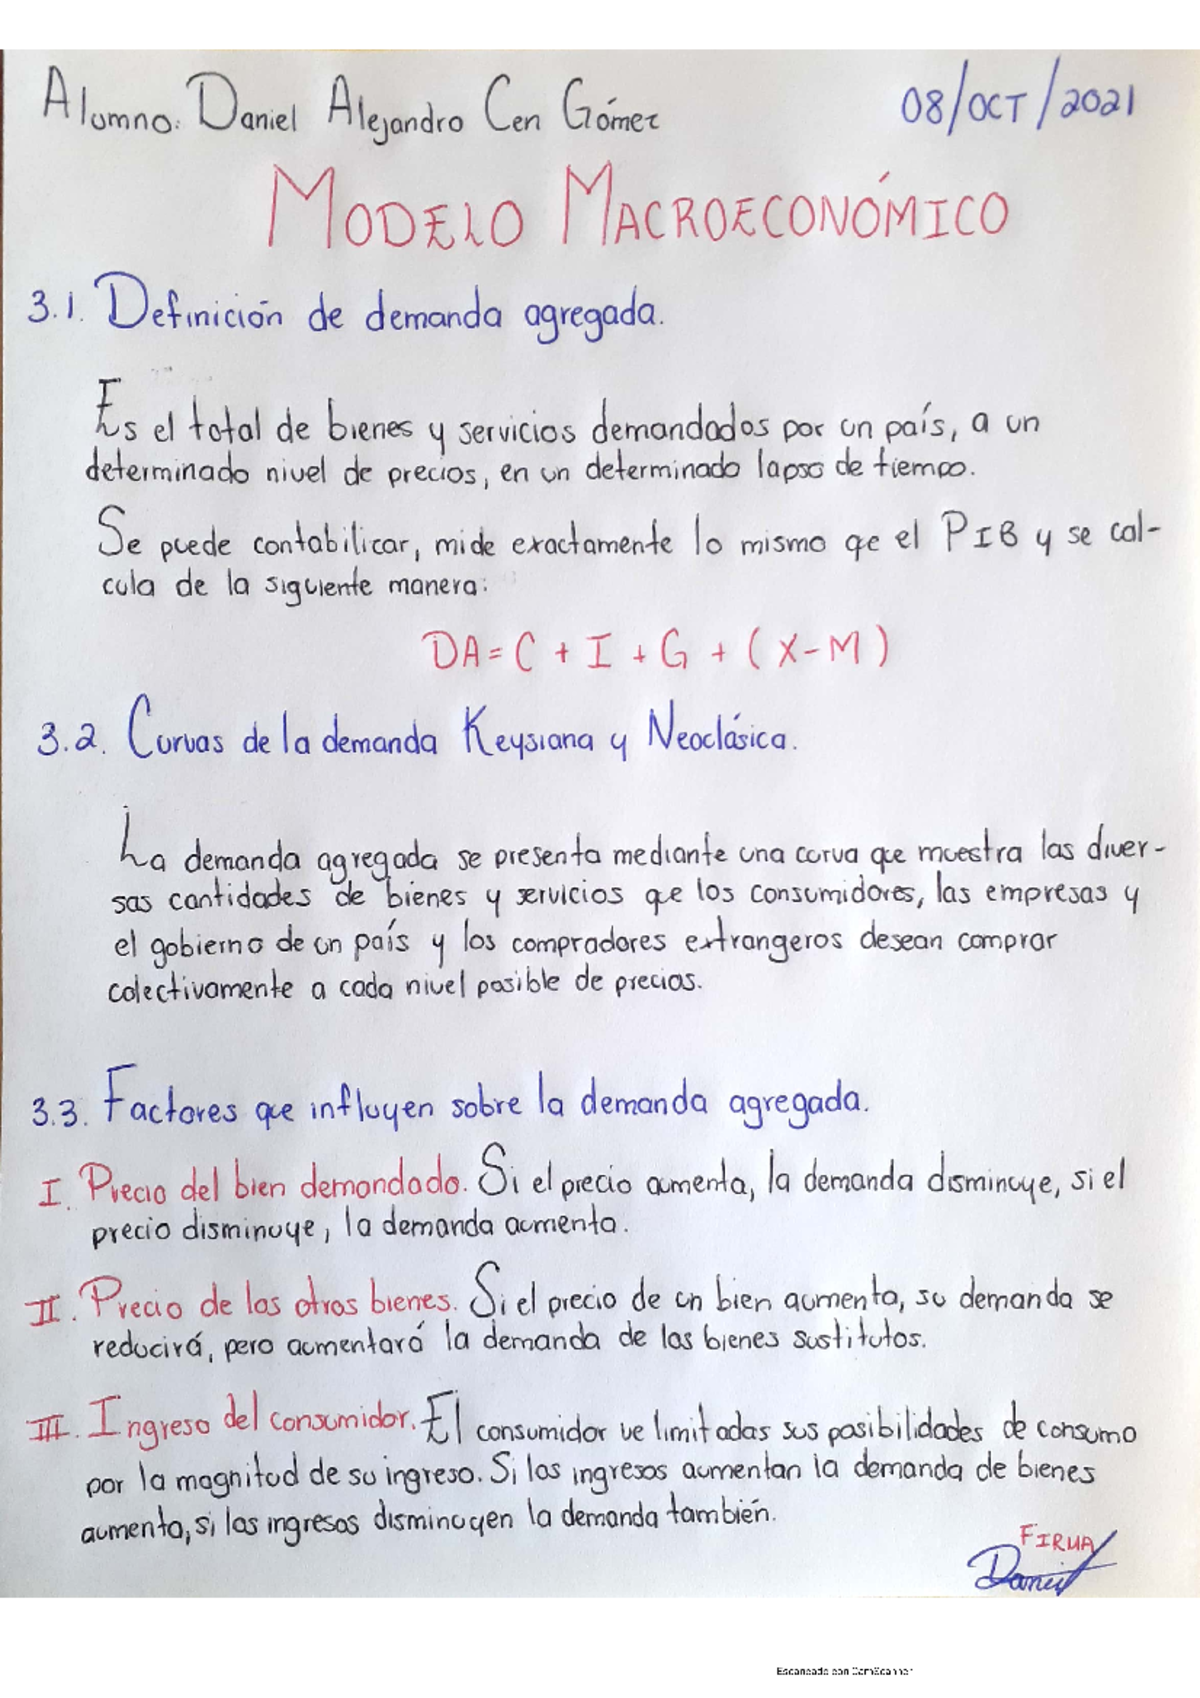 Alumno: Daniel Alejandro Cen Gómez
08/OCT/2021
MODELO MACROECONÓMICO
3.1. Definición de demanda agregada.
Es el total de bienes y servicios demandados por un país, a un
determinado nivel de precios, en un determinado lapso de tiempo.
Se puede contabilicar, mide exactamente lo mismo qe el PIB y se cal-
cula de la siguiente manera:
DA = C + I + G + (X-M)
3.2. Curvas de la demanda Keysiana y Neoclásica.
La demanda agregada se presenta mediante una curva que muestra las diver-
sas cantidades de bienes y servicios que los consumidores, las empresas y
el gobierno de un país y los compradores extrangeros desean comprar
colectivamente a cada nivel posible de precios.
3.3. Factores que influyen sobre la demanda agregada.
I. Precio del bien demandado. Si el precio aumenta, la demanda disminuye, si el
precio disminuye, la demanda aumenta.
II. Precio de los otros bienes. Si el precio de un bien aumenta, su demanda se
reducirá, pero aumentará la demanda de los bienes sustitutos.
III. Ingreso del consumidor. El consumidor ve limitadas sus posibilidades de consumo
por la magnitud de su ingreso. Si los ingresos aumentan la demanda de bienes
aumenta, si los ingresos disminuyen la demanda también.
FIRMA
Daniel
Escaneado con CamScanner